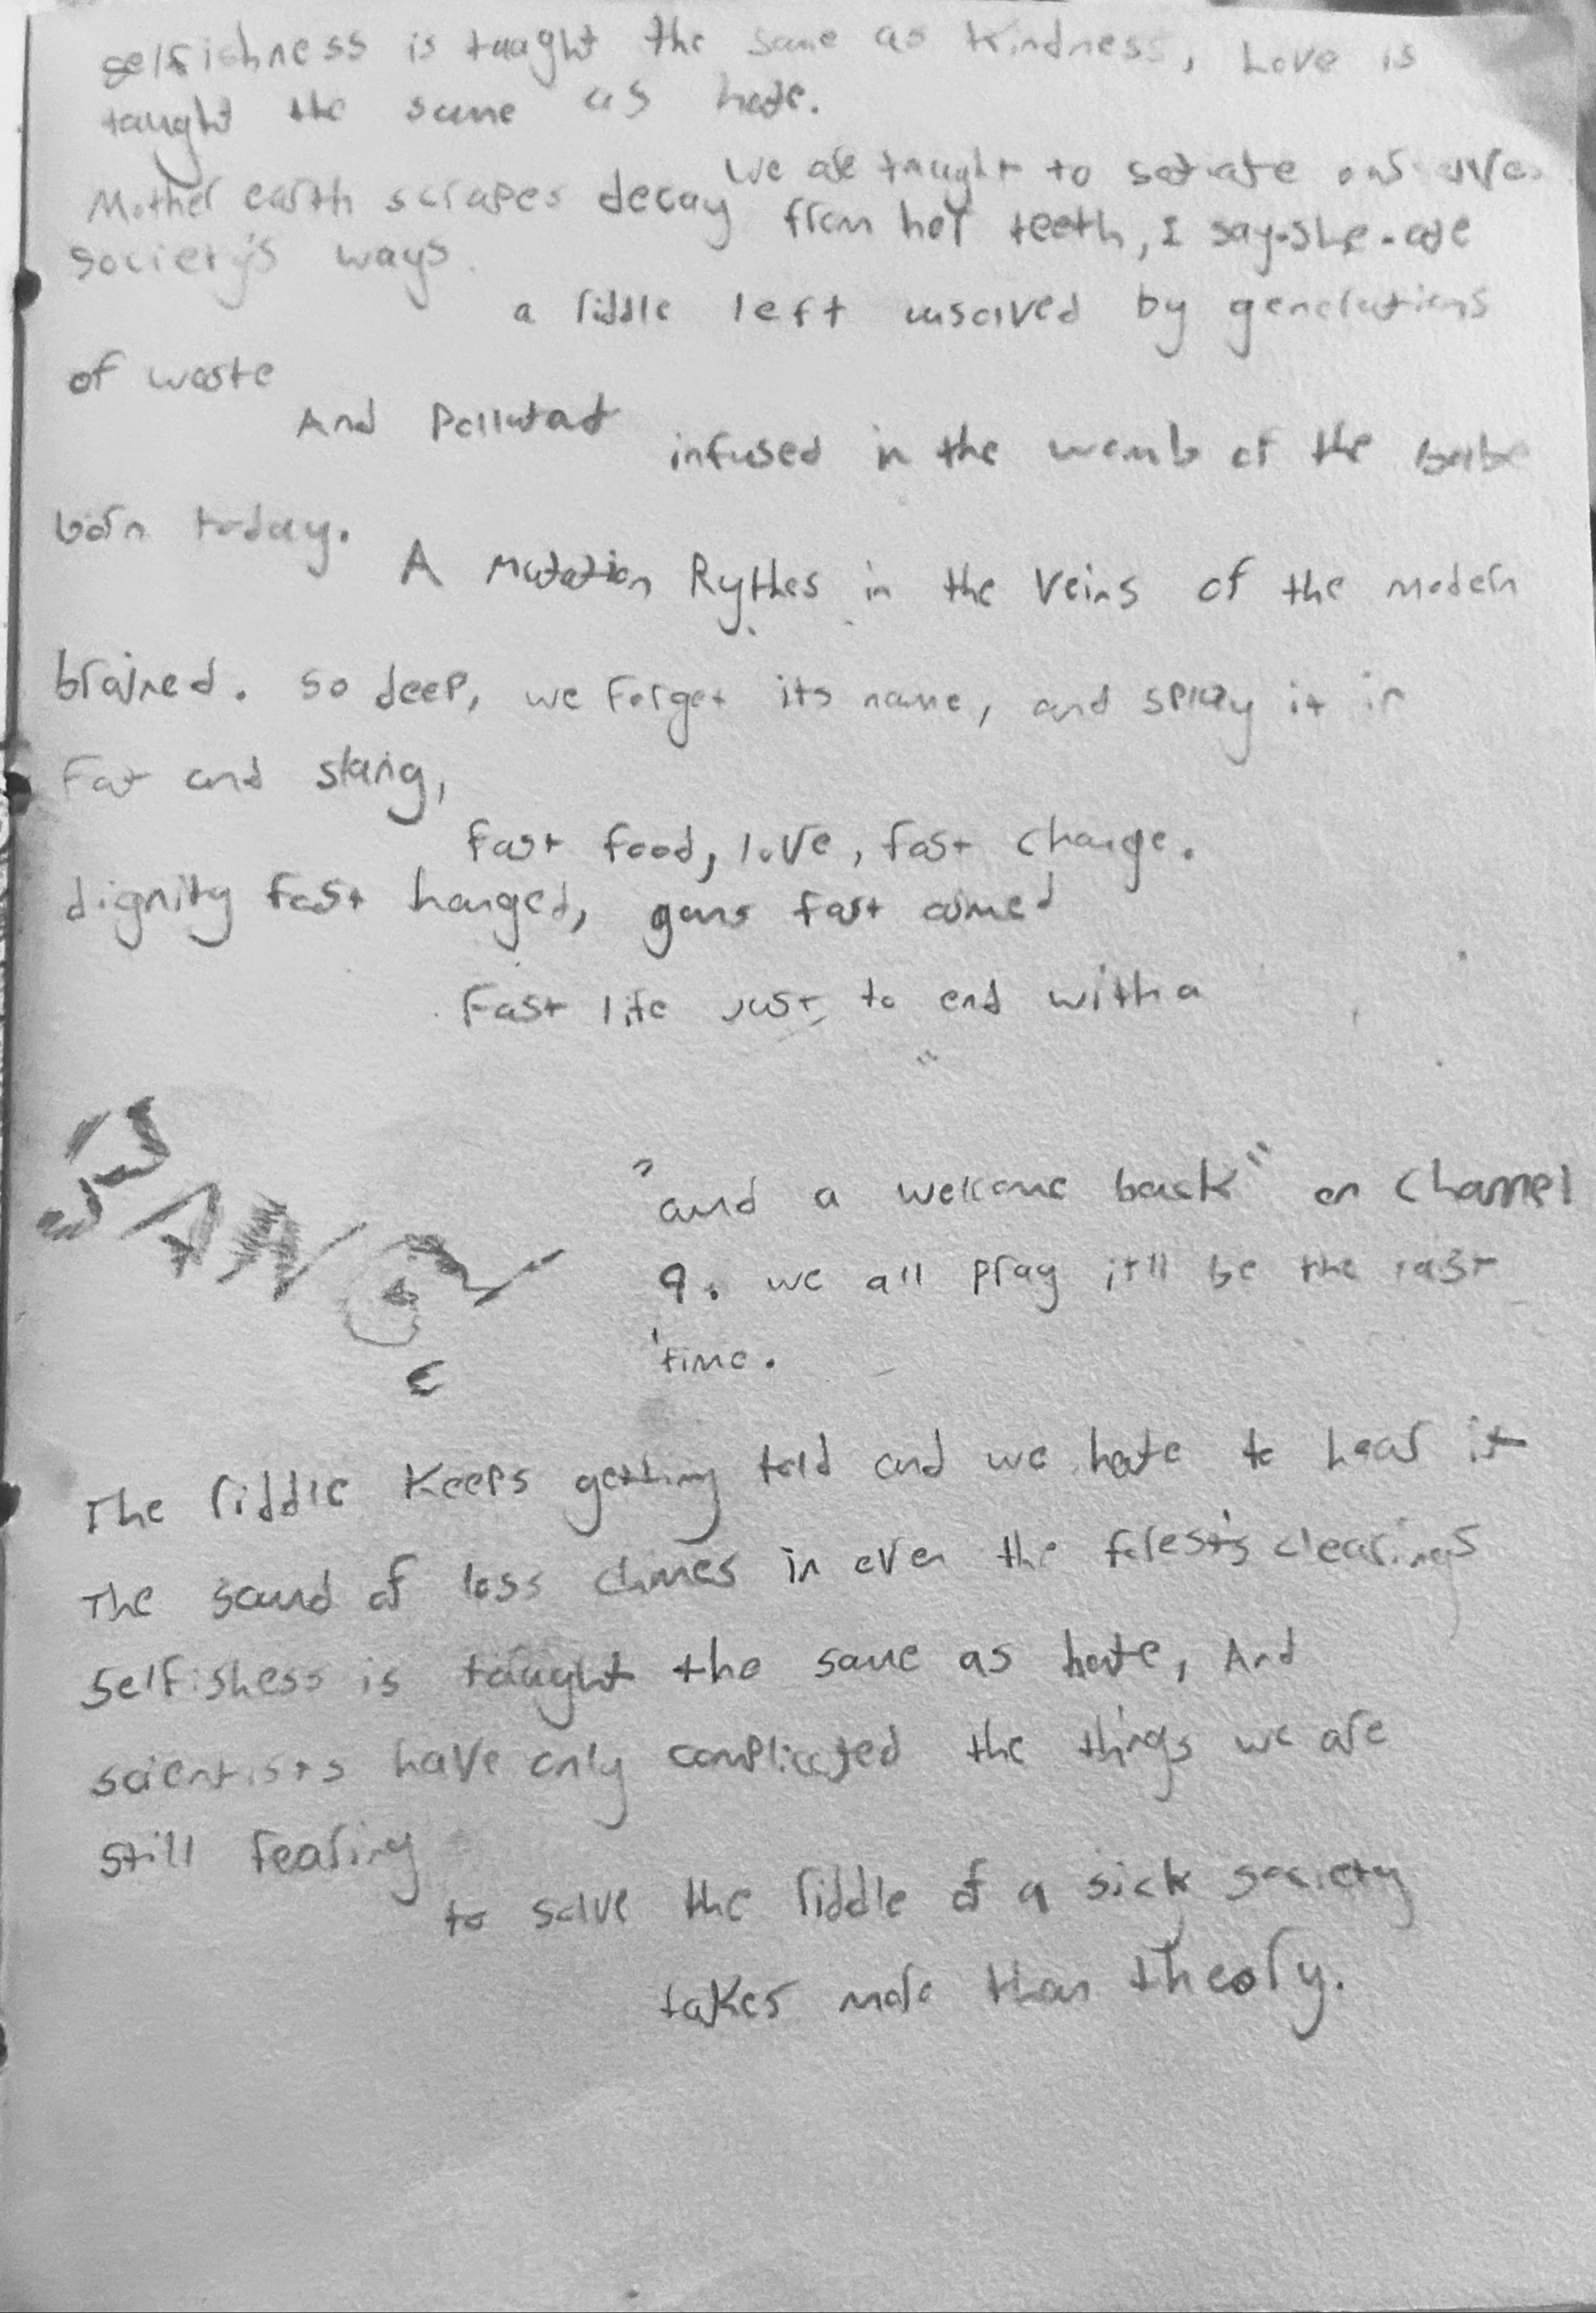 selfishness is taught the same as kindness, Love is
taught the same as hate.
We are taught to satiate ourselves
Mother earth scrapes decay from her teeth, I say-she-ate
society's ways.
a riddle left unsolved by generations
of waste
And Pollutant infused in the womb of the babe
born today.
A Mutation Rythes in the veins of the modern
brained. so deep, we forget its name, and spray it in
Fat and slang,
fast food, love, fast change.
dignity fast hanged, guns fast aimed
Fast life just to end with a
BANG!
"and a welcome back" on Channel
9. we all pray it'll be the last
time.
The riddle keeps getting told and we hate to hear it
The sound of loss chimes in even the forest's clearings
Selfishess is taught the same as hate, And
scientists have only complicated the things we are
still fearing
to solve the riddle of a sick society
takes more than theory.